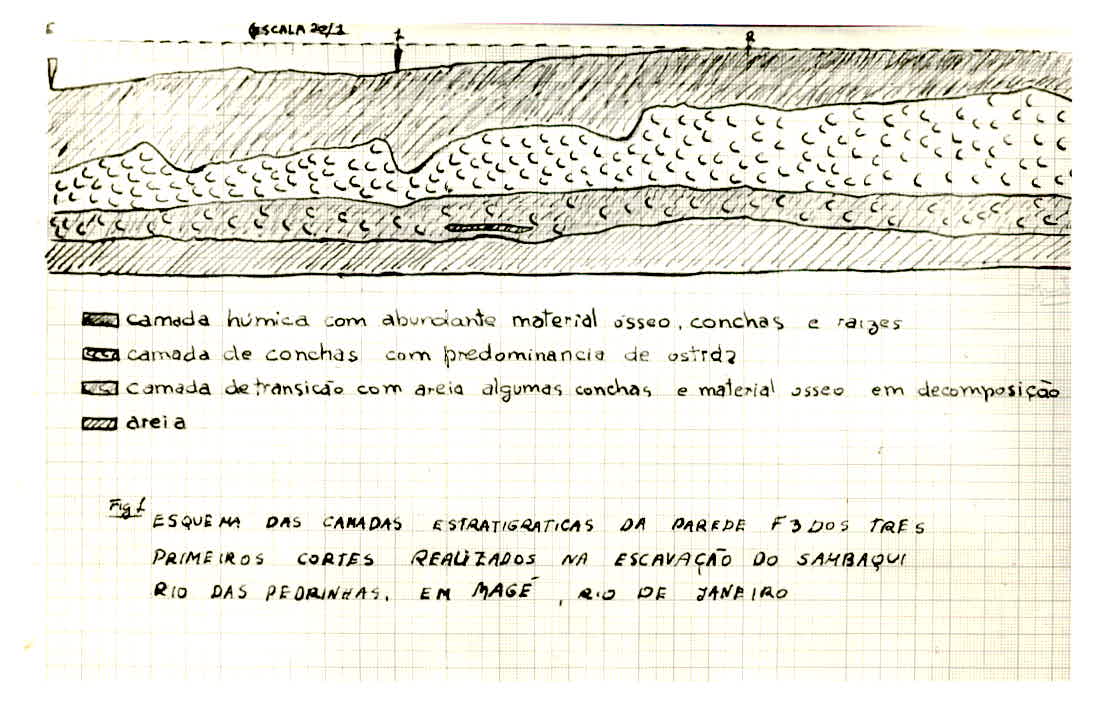 ESCALA 20/1
1
2
camada húmica com abundante material ósseo, conchas e raizes
camada de conchas com predominancia de
camada de transicão com areia algumas conchas e material osseo em decomposição
areia
Fig 1
ESQUEMA DAS CAMADAS ESTRATIGRATICAS DA PAREDE F3 DOS TRES
PRIMEIROS CORTES REALIZADOS NA ESCAVAÇÃO DO SAMBAQUI
RIO DAS PEDRINHAS, EM MAGÉ, RIO DE JANEIRO